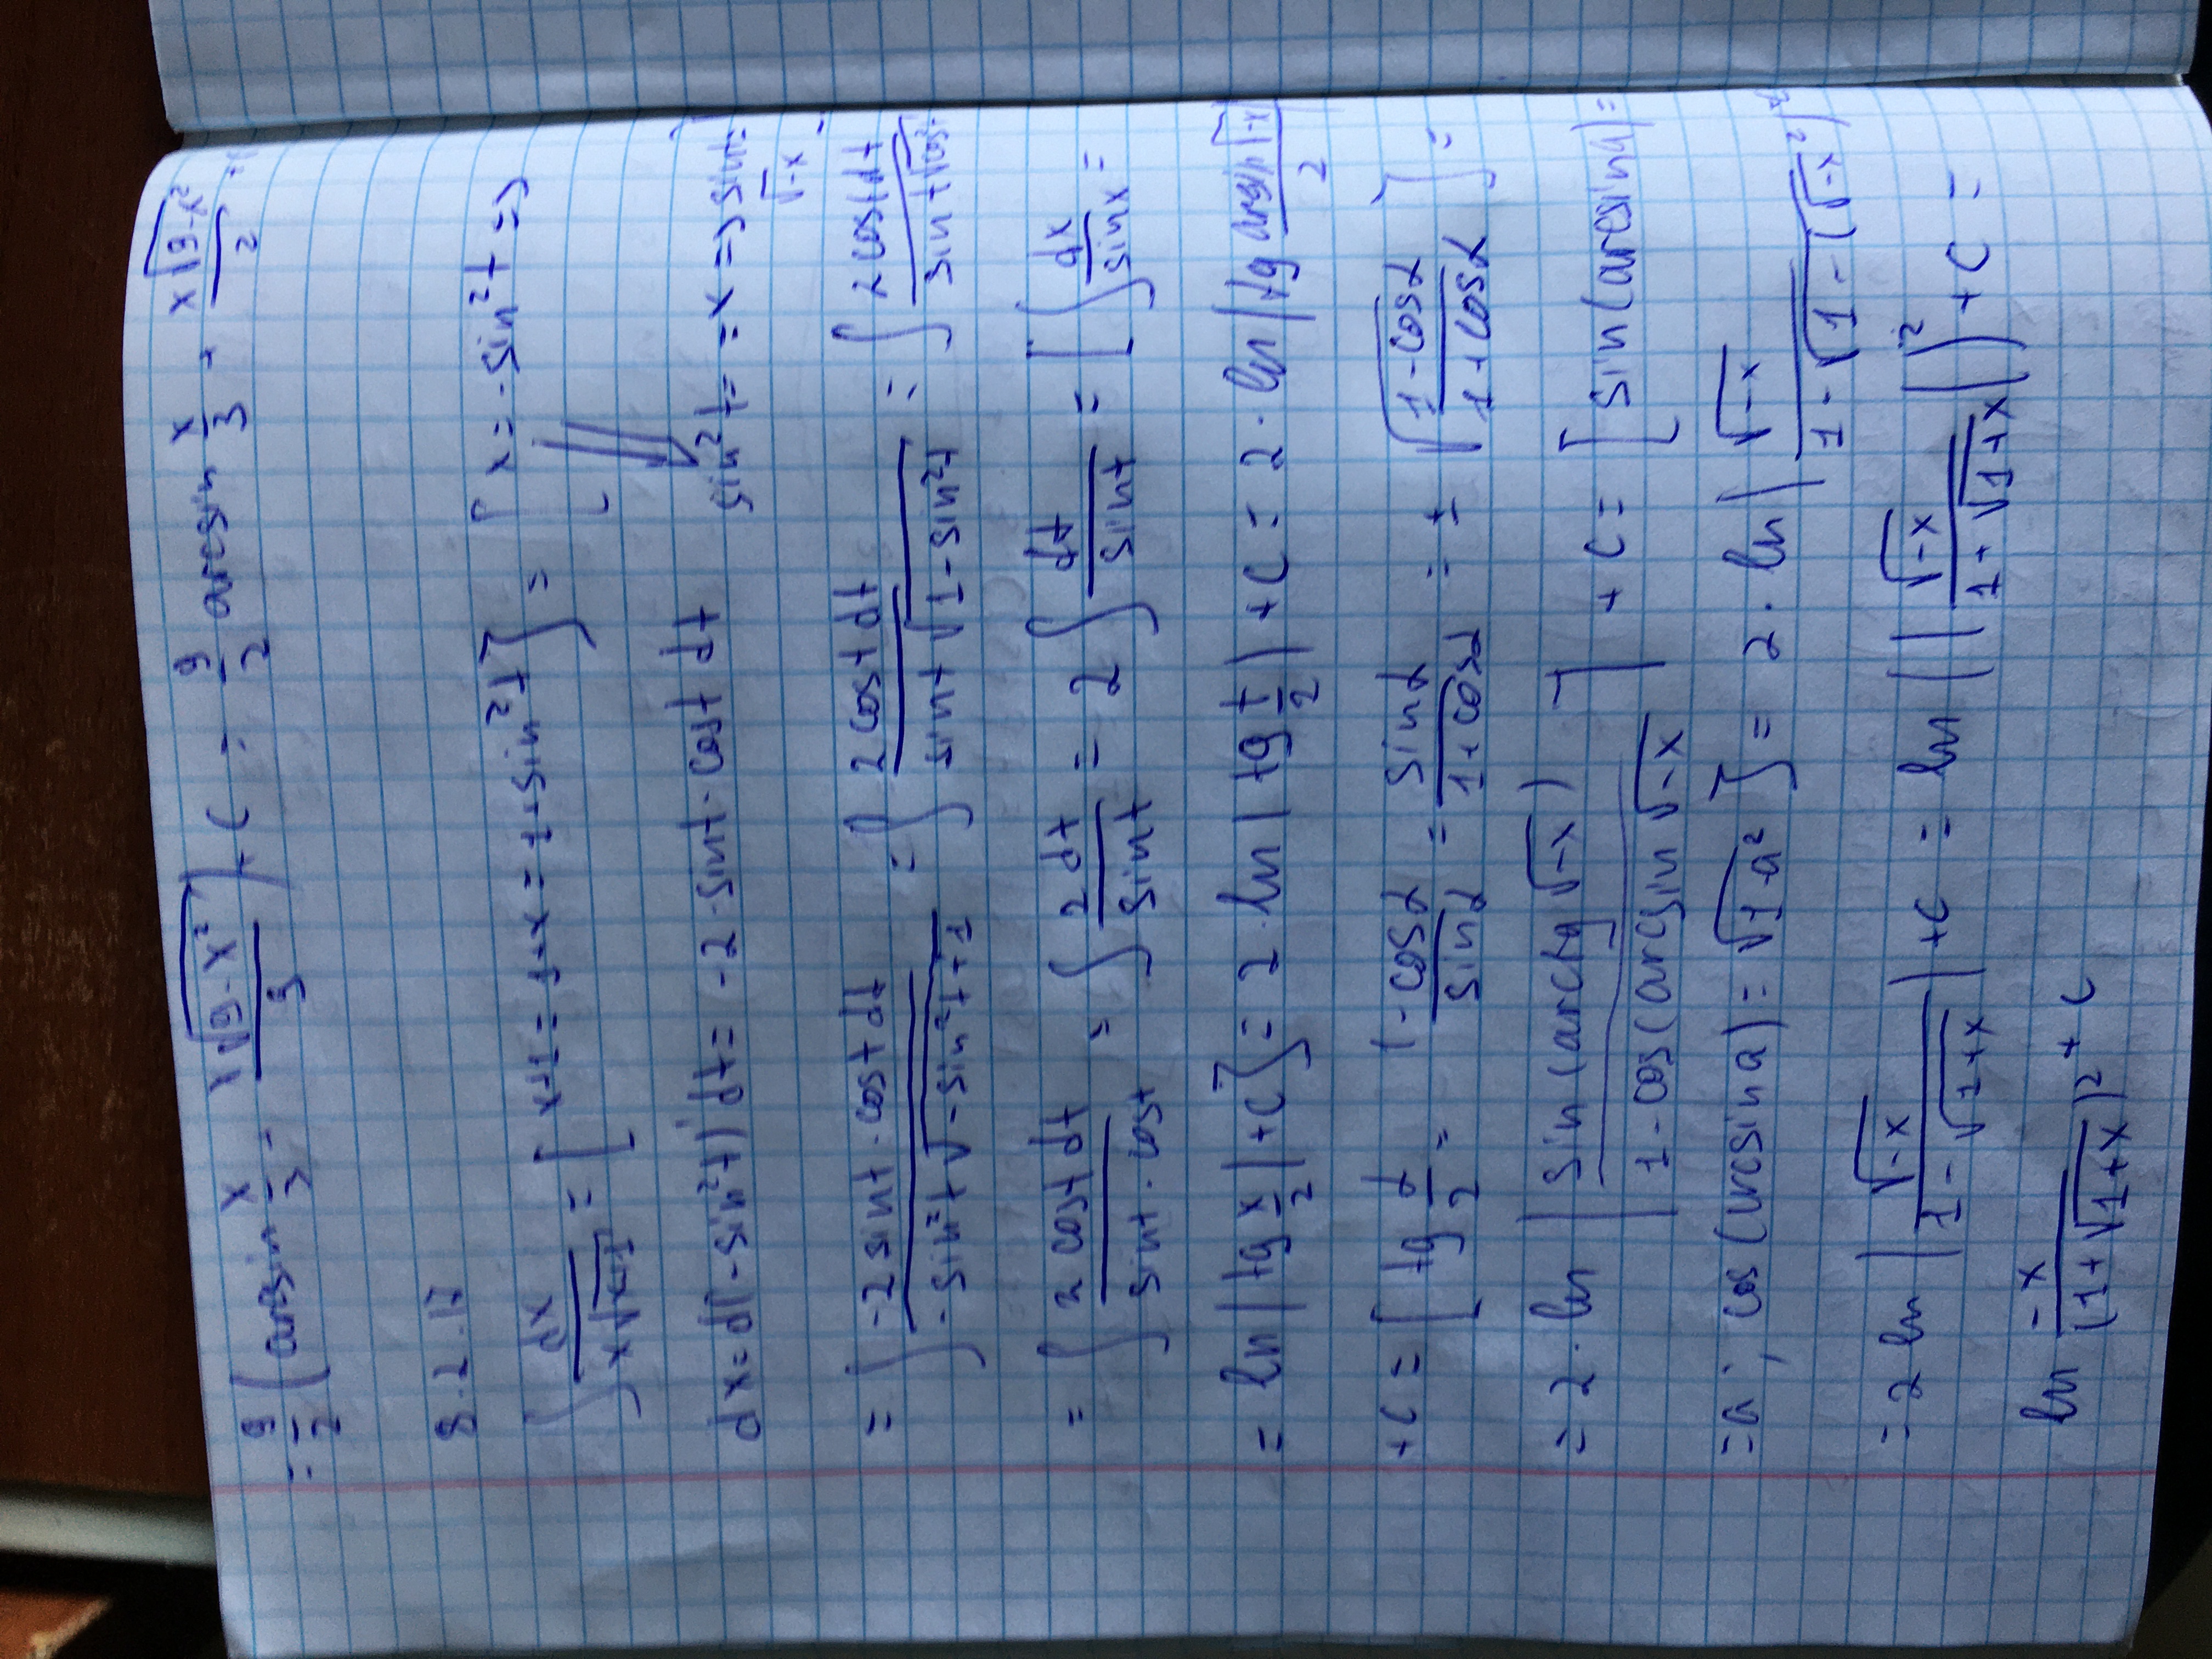 = 9/2 (arcsin x/3 - x√(9-x²)/9) + C = 9/2 arcsin x/3 + x√(9-x²)/2 + C
8.2.17
∫ dx/(x√(x+1)) = [x+1 = 1+x = 1+sin²t] = [x = -sin²t =>
dx = d(-sin²t)' dt = -2·sint·cost dt sin²t = -x => sint =
√-x]
= ∫ (-2sint·cost dt)/(-sin²t√(-sin²t+1)) = ∫ (2cost dt)/(sint√(1-sin²t)) = ∫ (2cost dt)/(sint√cos²t)
= ∫ (2cost dt)/(sint·cost) = ∫ 2dt/sint = 2∫ dt/sint = [∫ dx/sinx =
= ln|tg x/2| + c] = 2·ln|tg t/2| + c = 2·ln|tg (arsin√-x)/2|
+c = [tg α/2 = (1-cosα)/sinα = sinα/(1+cosα) = ± √((1-cosα)/(1+cosα))] =
= 2·ln |sin(arctg √-x)/(1-cos(arcsin √-x)] + c = [sin(arcsina) =
= a; cos(arcsina) = √(1-a²)] = 2·ln| √-x/(1-√(1-(√-x²)
= 2 ln |√-x/(1-√(1+x))| + c = ln (|√-x/(1+√(1+x))|)² + c =
ln -x/(1+√(1+x))² + c